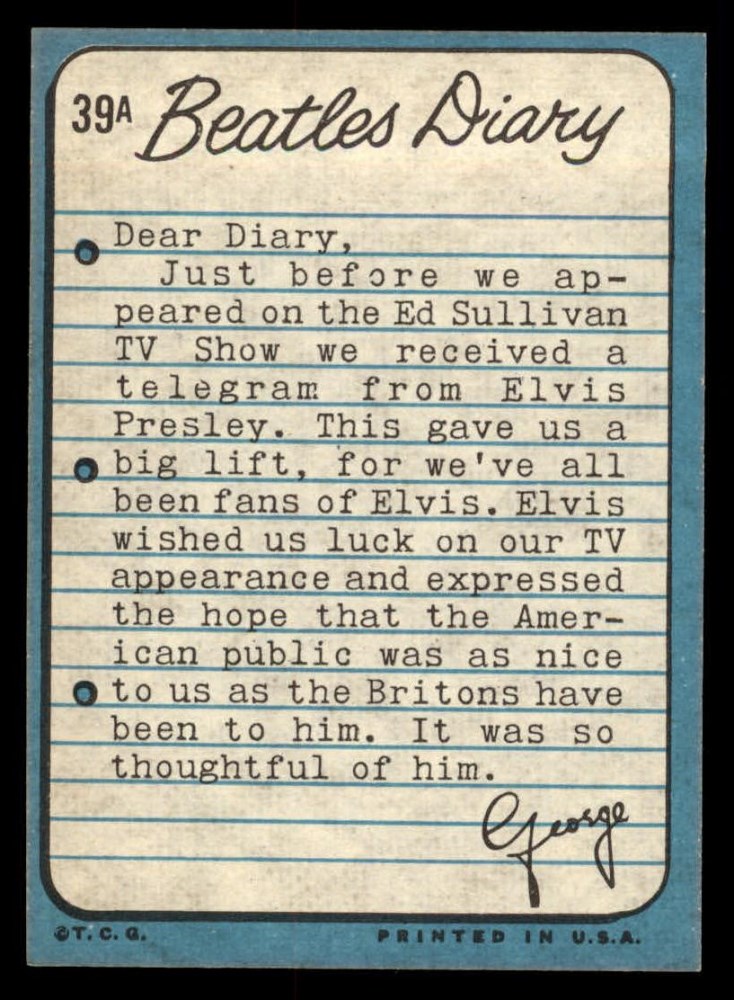 39A Beatles Diary
Dear Diary,
Just before we ap-
peared on the Ed Sullivan
TV Show we received a
telegram from Elvis
Presley. This gave us a
big lift, for we've all
been fans of Elvis. Elvis
wished us luck on our TV
appearance and expressed
the hope that the Amer-
ican public was as nice
to us as the Britons have
been to him. It was so
thoughtful of him.
George
©T. C. G. PRINTED IN U.S.A.